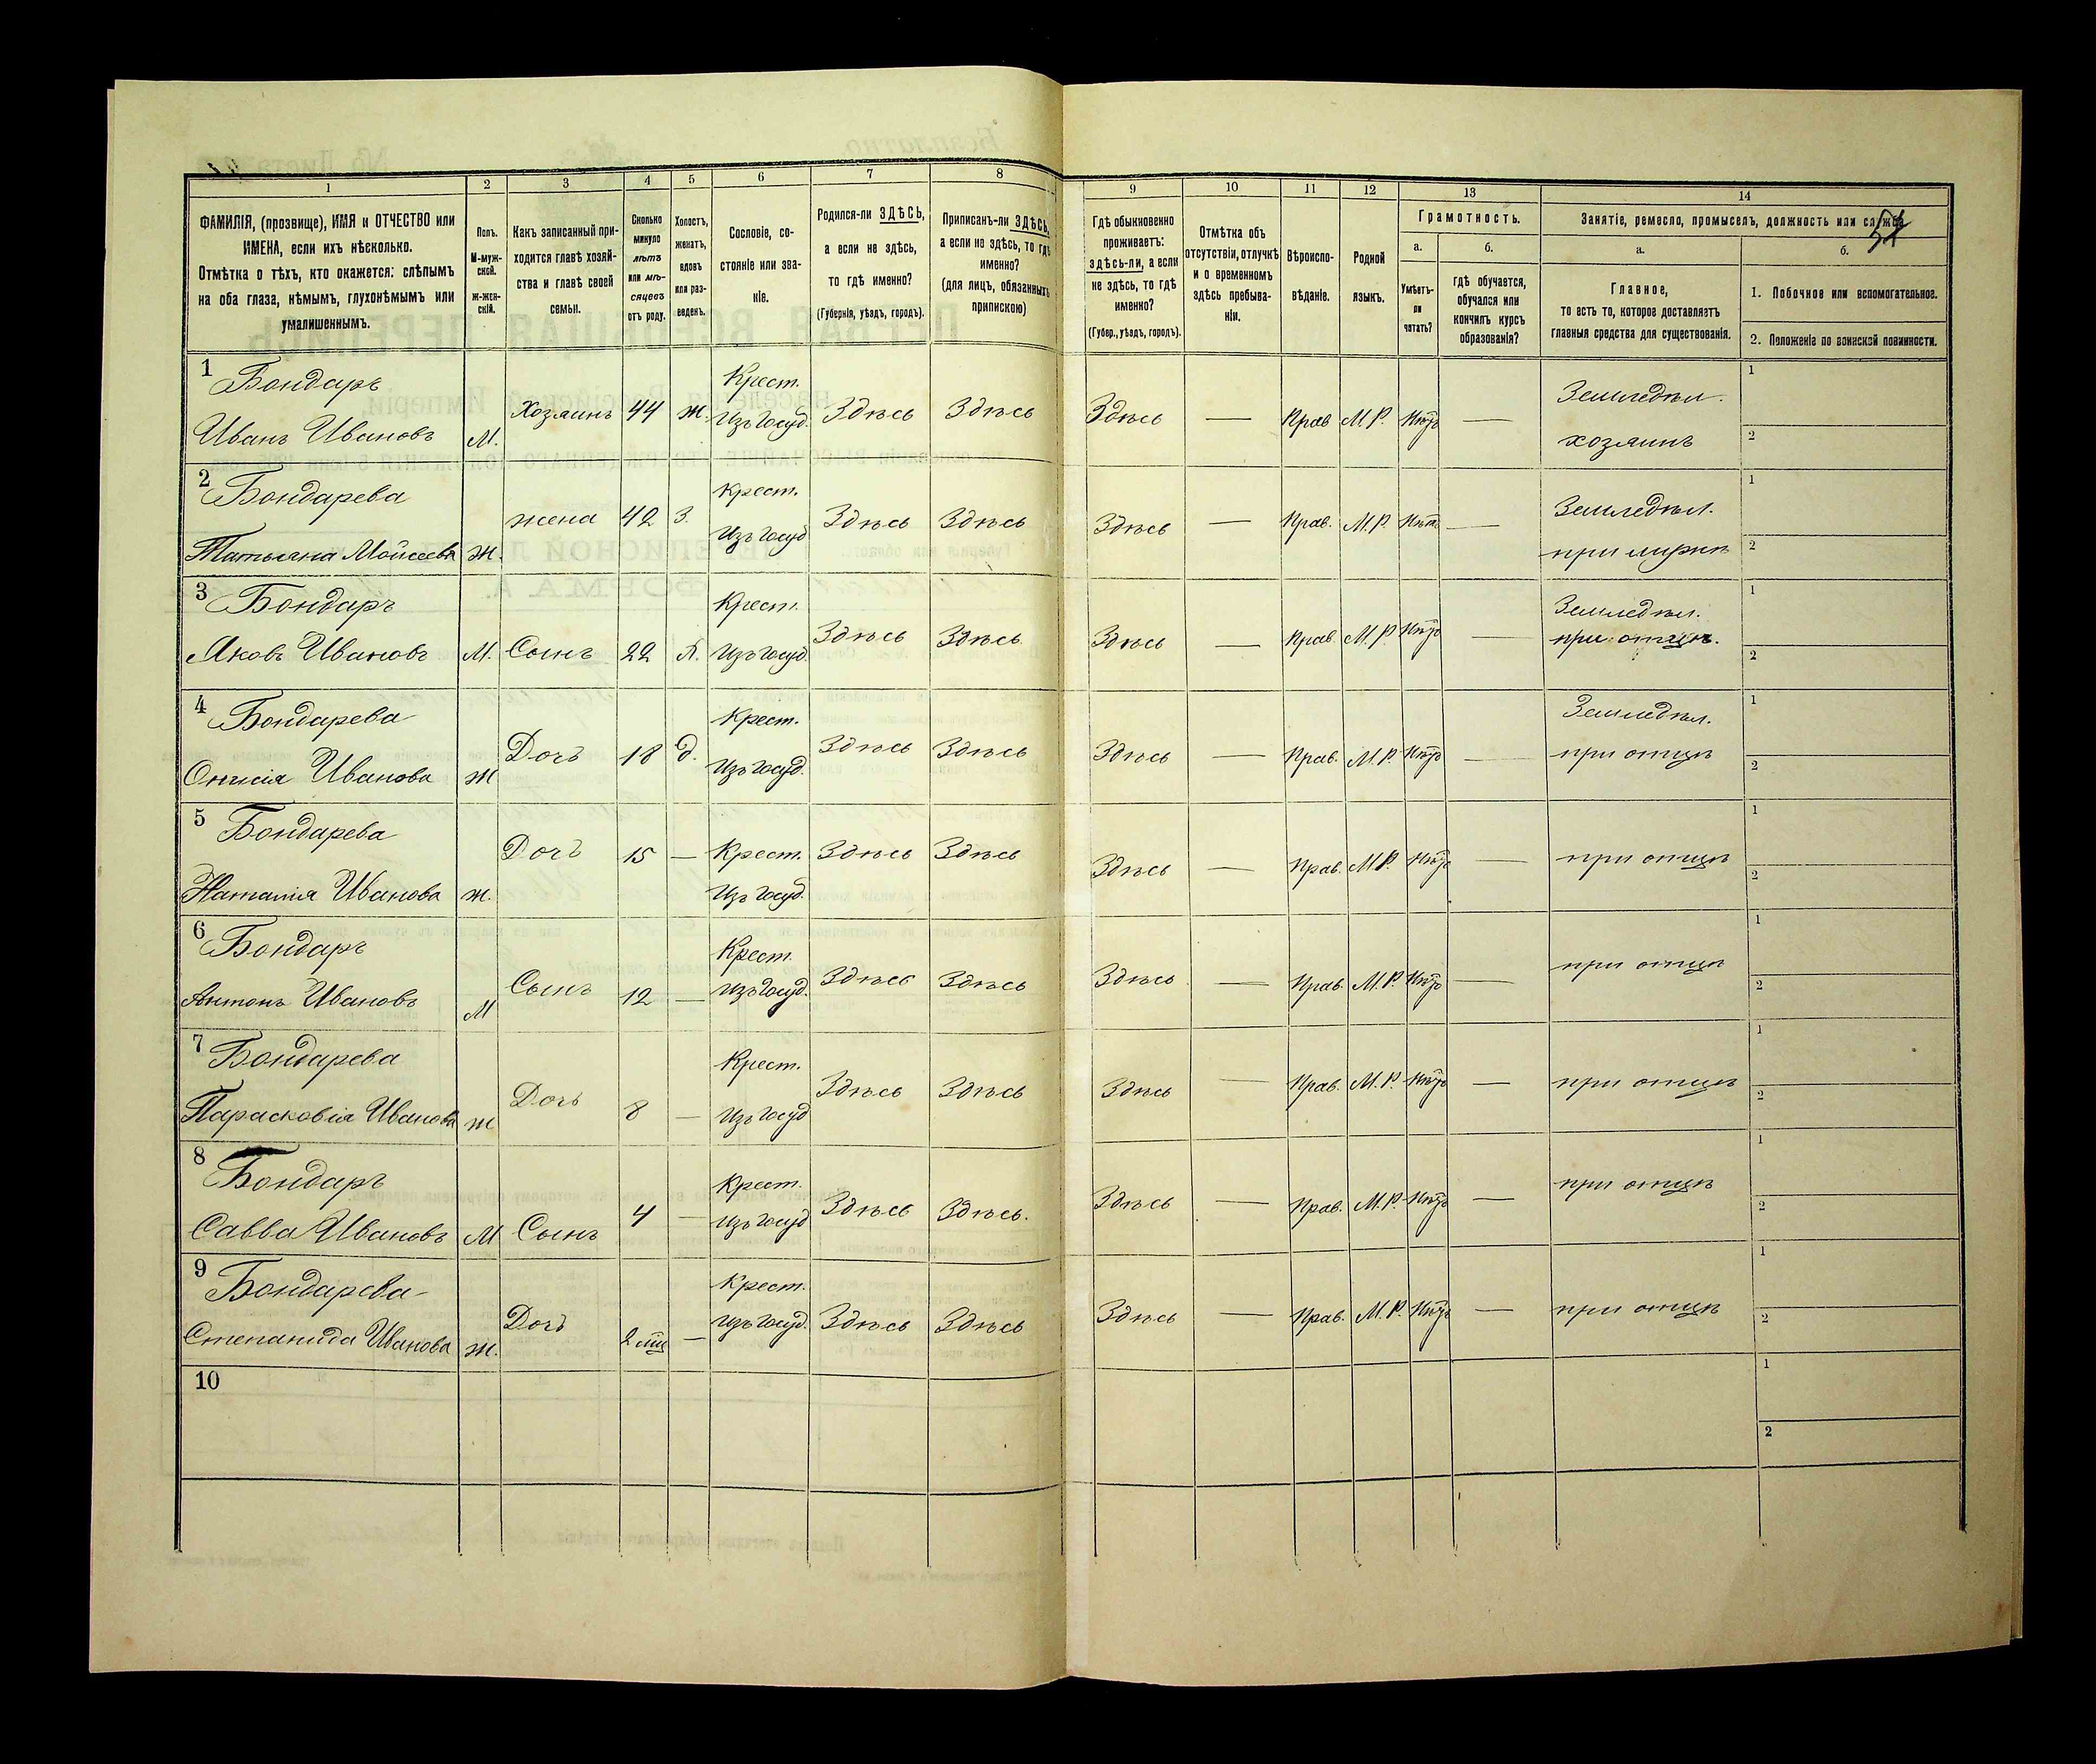 1 2 3 4 5 6 7 8 9 10 11 12 13 14
ФАМИЛІЯ, (прозвище), ИМЯ и ОТЧЕСТВО или
ИМЕНА, если ихъ нѣсколько.
Отмѣтка о тѣхъ, кто окажется: слѣпымъ
на оба глаза, нѣмымъ, глухонѣмымъ или
умалишеннымъ.
Полъ.
М-муж-
ской.
Ж-жен-
скій.
Какъ записанный при-
ходится главѣ хозяй-
ства и главѣ своей
семьи.
Сколько
минуло
лѣтъ
или мѣ-
сяцевъ
отъ роду.
Холостъ,
женатъ,
вдовъ
или раз-
веденъ.
Сословіе, со-
стояніе или зва-
ніе.
Родился-ли ЗДѢСЬ,
а если не здѣсь,
то гдѣ именно?
(Губернія, уѣздъ, городъ).
Приписанъ-ли ЗДѢСЬ,
а если не здѣсь, то гдѣ
именно?
(для лицъ, обязанныхъ
припискою)
Гдѣ обыкновенно
проживаетъ:
здѣсь-ли, а если
не здѣсь, то гдѣ
именно?
(Губер., уѣздъ, городъ).
Отмѣтка объ
отсутствіи, отлучкѣ
и о временномъ
здѣсь пребыва-
ніи.
Вѣроиспо-
вѣданіе.
Родной
языкъ.
Грамотность.
а. б.
Умѣетъ-
ли
читать?
гдѣ обучается,
обучался или
кончилъ курсъ
образованія?
Занятіе, ремесло, промыселъ, должность или служба
а. б.
Главное,
то есть то, которое доставляетъ
главныя средства для существованія.
1. Побочное или вспомогательное.
2. Положеніе по воинской повинности.
1 Бондаръ Крест. Земледѣл. 1
Иванъ Ивановъ М. Хозяинъ 44 ж. Изъ госуд. Здѣсь Здѣсь Здѣсь — Прав М.Р. Нѣтъ — хозяинъ 2
2 Бондарева Крест. Земледѣл. 1
Татьяна Мойсеева Ж. жена 42 З. Изъ госуд Здѣсь Здѣсь Здѣсь — Прав. М.Р. Нѣтъ — при мужѣ 2
3 Бондаръ Крест. Земледѣл. 1
Яковъ Ивановъ М. Сынъ 22 Изъ госуд Здѣсь Здѣсь Здѣсь — Прав. М.Р. Нѣтъ — при отцѣ. 2
4 Бондарева Крест. Земледѣл. 1
Иванова Ж Дочь 18 д. Изъ госуд. Здѣсь Здѣсь Здѣсь — Прав. М.Р. Нѣтъ — при отцѣ 2
5 Бондарева Крест. 1
Наталія Иванова Ж. Дочь 15 — Изъ госуд. Здѣсь Здѣсь Здѣсь — Прав. М.Р. Нѣтъ — при отцѣ 2
6 Бондаръ Крест. 1
Антонъ Ивановъ М Сынъ 12 — Изъ госуд. Здѣсь Здѣсь Здѣсь — Прав. М.Р. Нѣтъ — при отцѣ 2
7 Бондарева Крест. 1
Парасковія Иванова Ж Дочь 8 — Изъ госуд Здѣсь Здѣсь Здѣсь — Прав. М.Р. Нѣтъ — при отцѣ 2
8 Бондаръ Крест. 1
Савва Ивановъ М Сынъ 4 — Изъ госуд Здѣсь Здѣсь. Здѣсь — Прав. М.Р. Нѣтъ — при отцѣ 2
9 Бондарева Крест. 1
Степанида Иванова Ж. Дочь 2 мц — Изъ госуд. Здѣсь Здѣсь Здѣсь — Прав. М.Р. Нѣтъ — при отцѣ 2
10 1
2